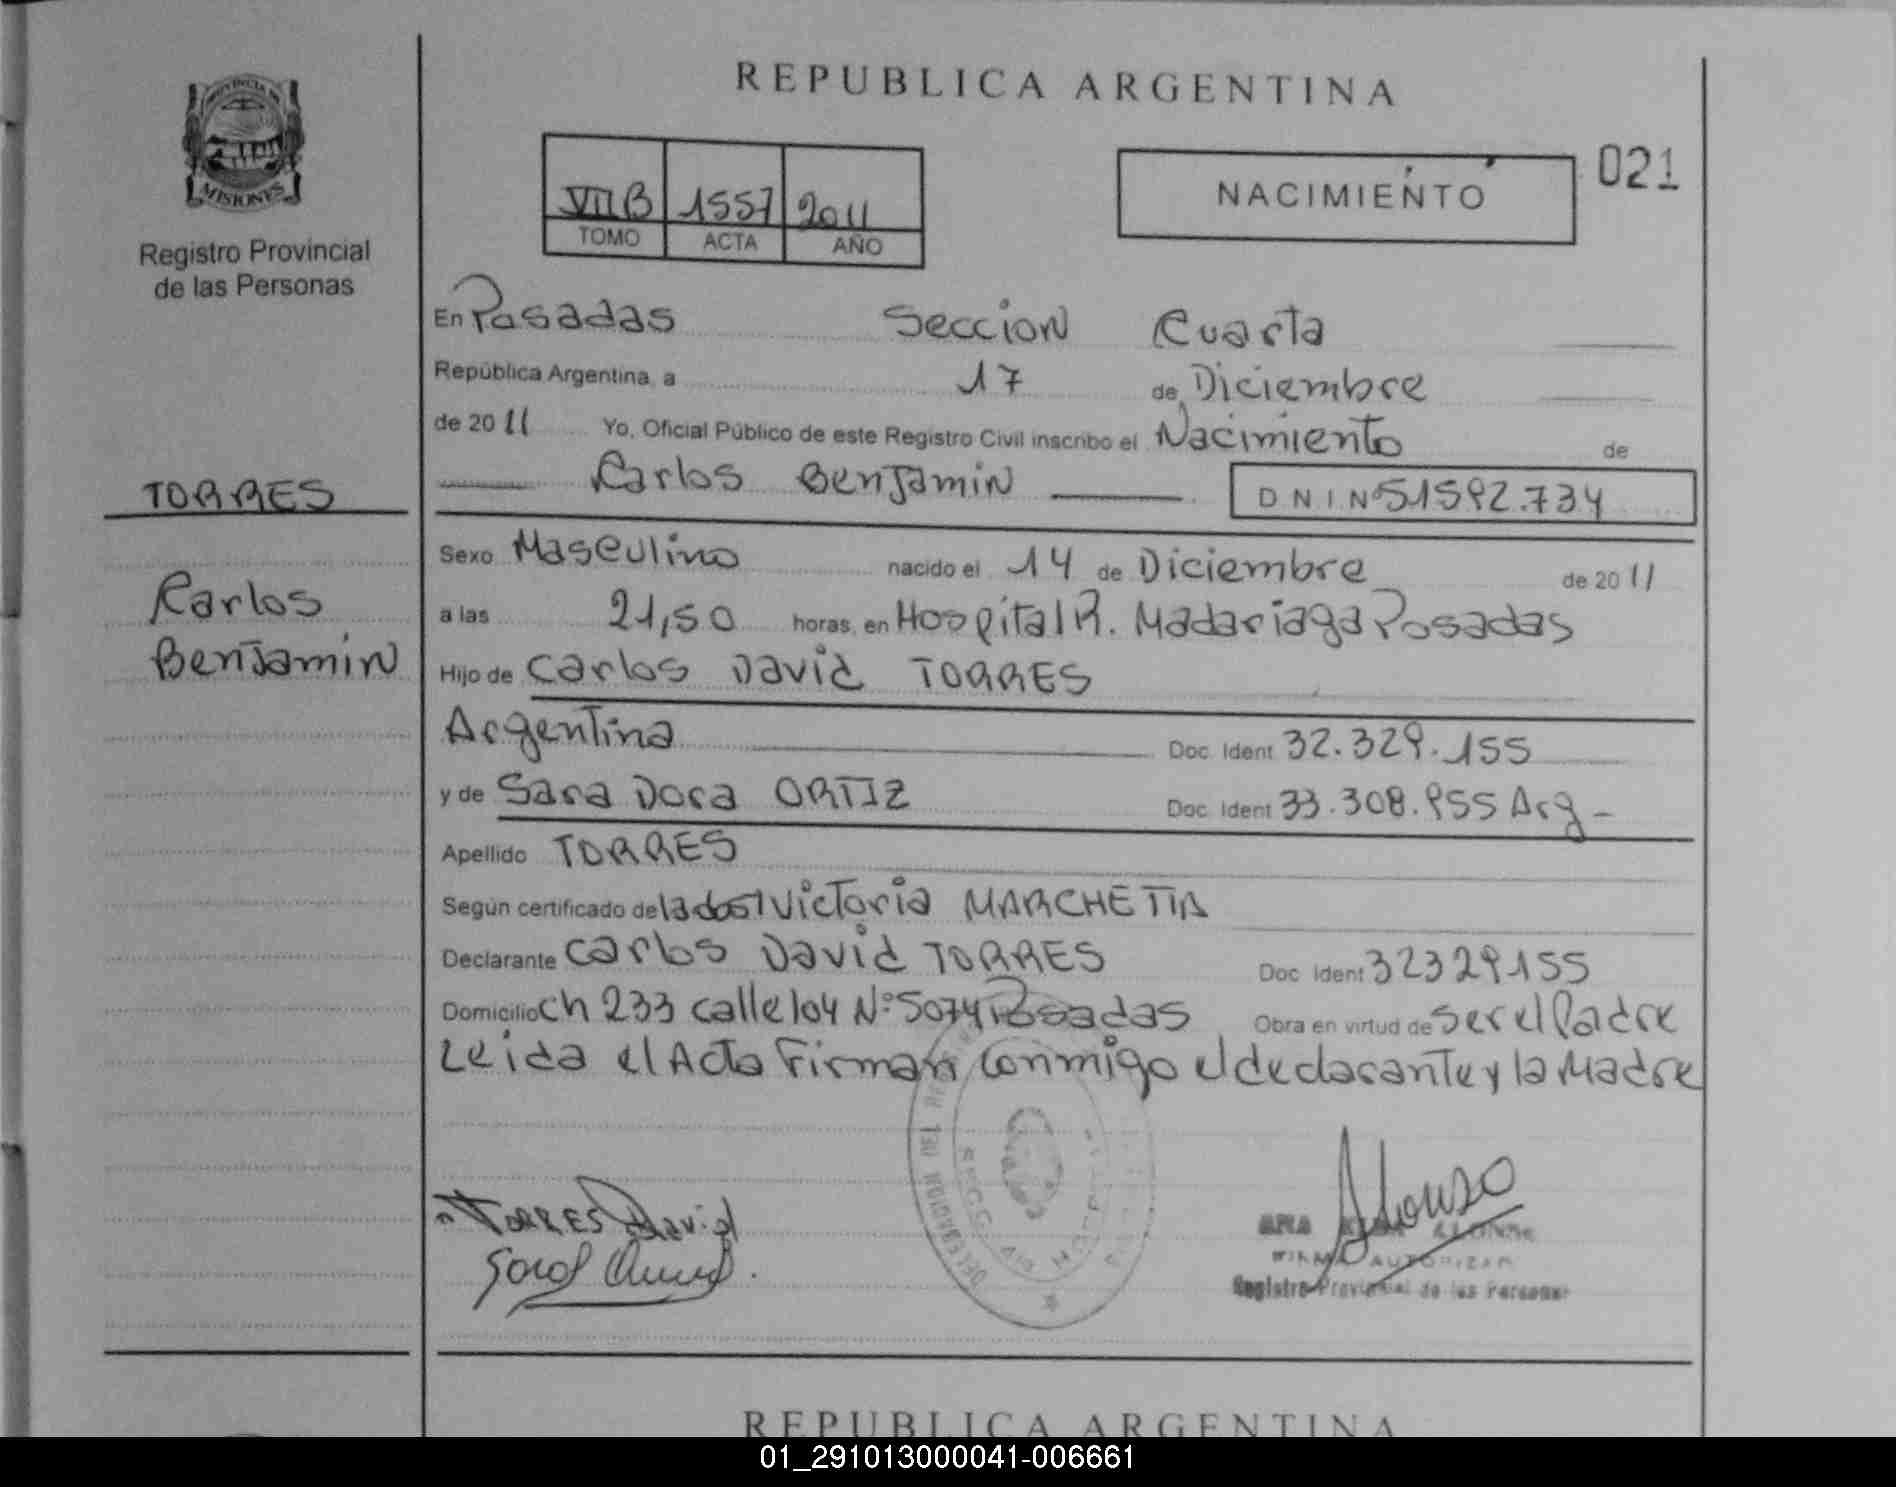 PROVINCIA DE
MISIONES
Registro Provincial
de las Personas
TORRES
Carlos
Benjamin
REPUBLICA ARGENTINA
VII B 1557 2011
TOMO ACTA AÑO
NACIMIENTO
021
En Posadas Seccion Cuarta
República Argentina, a 17 de Diciembre
de 2011 Yo, Oficial Público de este Registro Civil inscribo el Nacimiento de
Carlos Benjamin D N I Nº 51592.734
Sexo Masculino nacido el 14 de Diciembre de 2011
a las 21,50 horas, en Hospital R. Madariaga Posadas
Hijo de Carlos David TORRES
Argentina Doc. Ident 32.329.155
y de Sara Dora ORTIZ Doc. Ident 33.308.955 Arg -
Apellido TORRES
Según certificado de la dost Victoria MARCHETTA
Declarante Carlos David TORRES Doc Ident 32329155
Domicilio Ch 233 calle 104 Nº 5074 Posadas Obra en virtud de ser el Padre
Leida el Acta Firman Conmigo el declarante y la Madre
TORRES David
Alonso
Registro Provincial de las Personas
REPUBLICA ARGENTINA
01_291013000041-006661